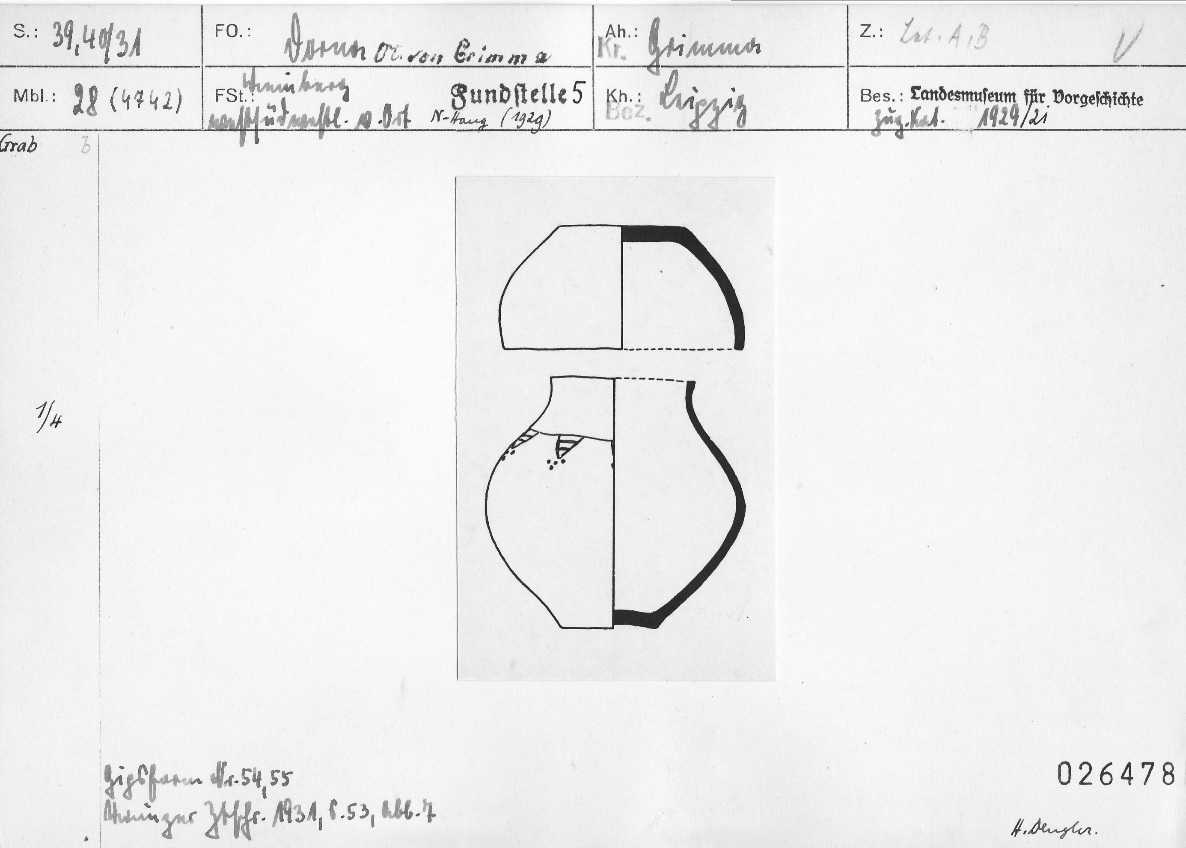 S.: 39,40/31
FO.: Dorna OT. von Grimma
Ah.: Grimma
Kr.
Z.: Lat. A,B
Mbl.: 28 (4742)
FSt.: Weinberg
westsüdwestl. v. Ort
Fundstelle 5
N-Hang (1929)
Kh.: Leipzig
Bez.
Bes.: Landesmuseum für Vorgeschichte
Zug. Kat. 1929/21
Grab 6
1/4
Gipsform Nr. 54, 55
Ztschr. 1931, S. 53, Abb. 7
026478
H. Dengler.